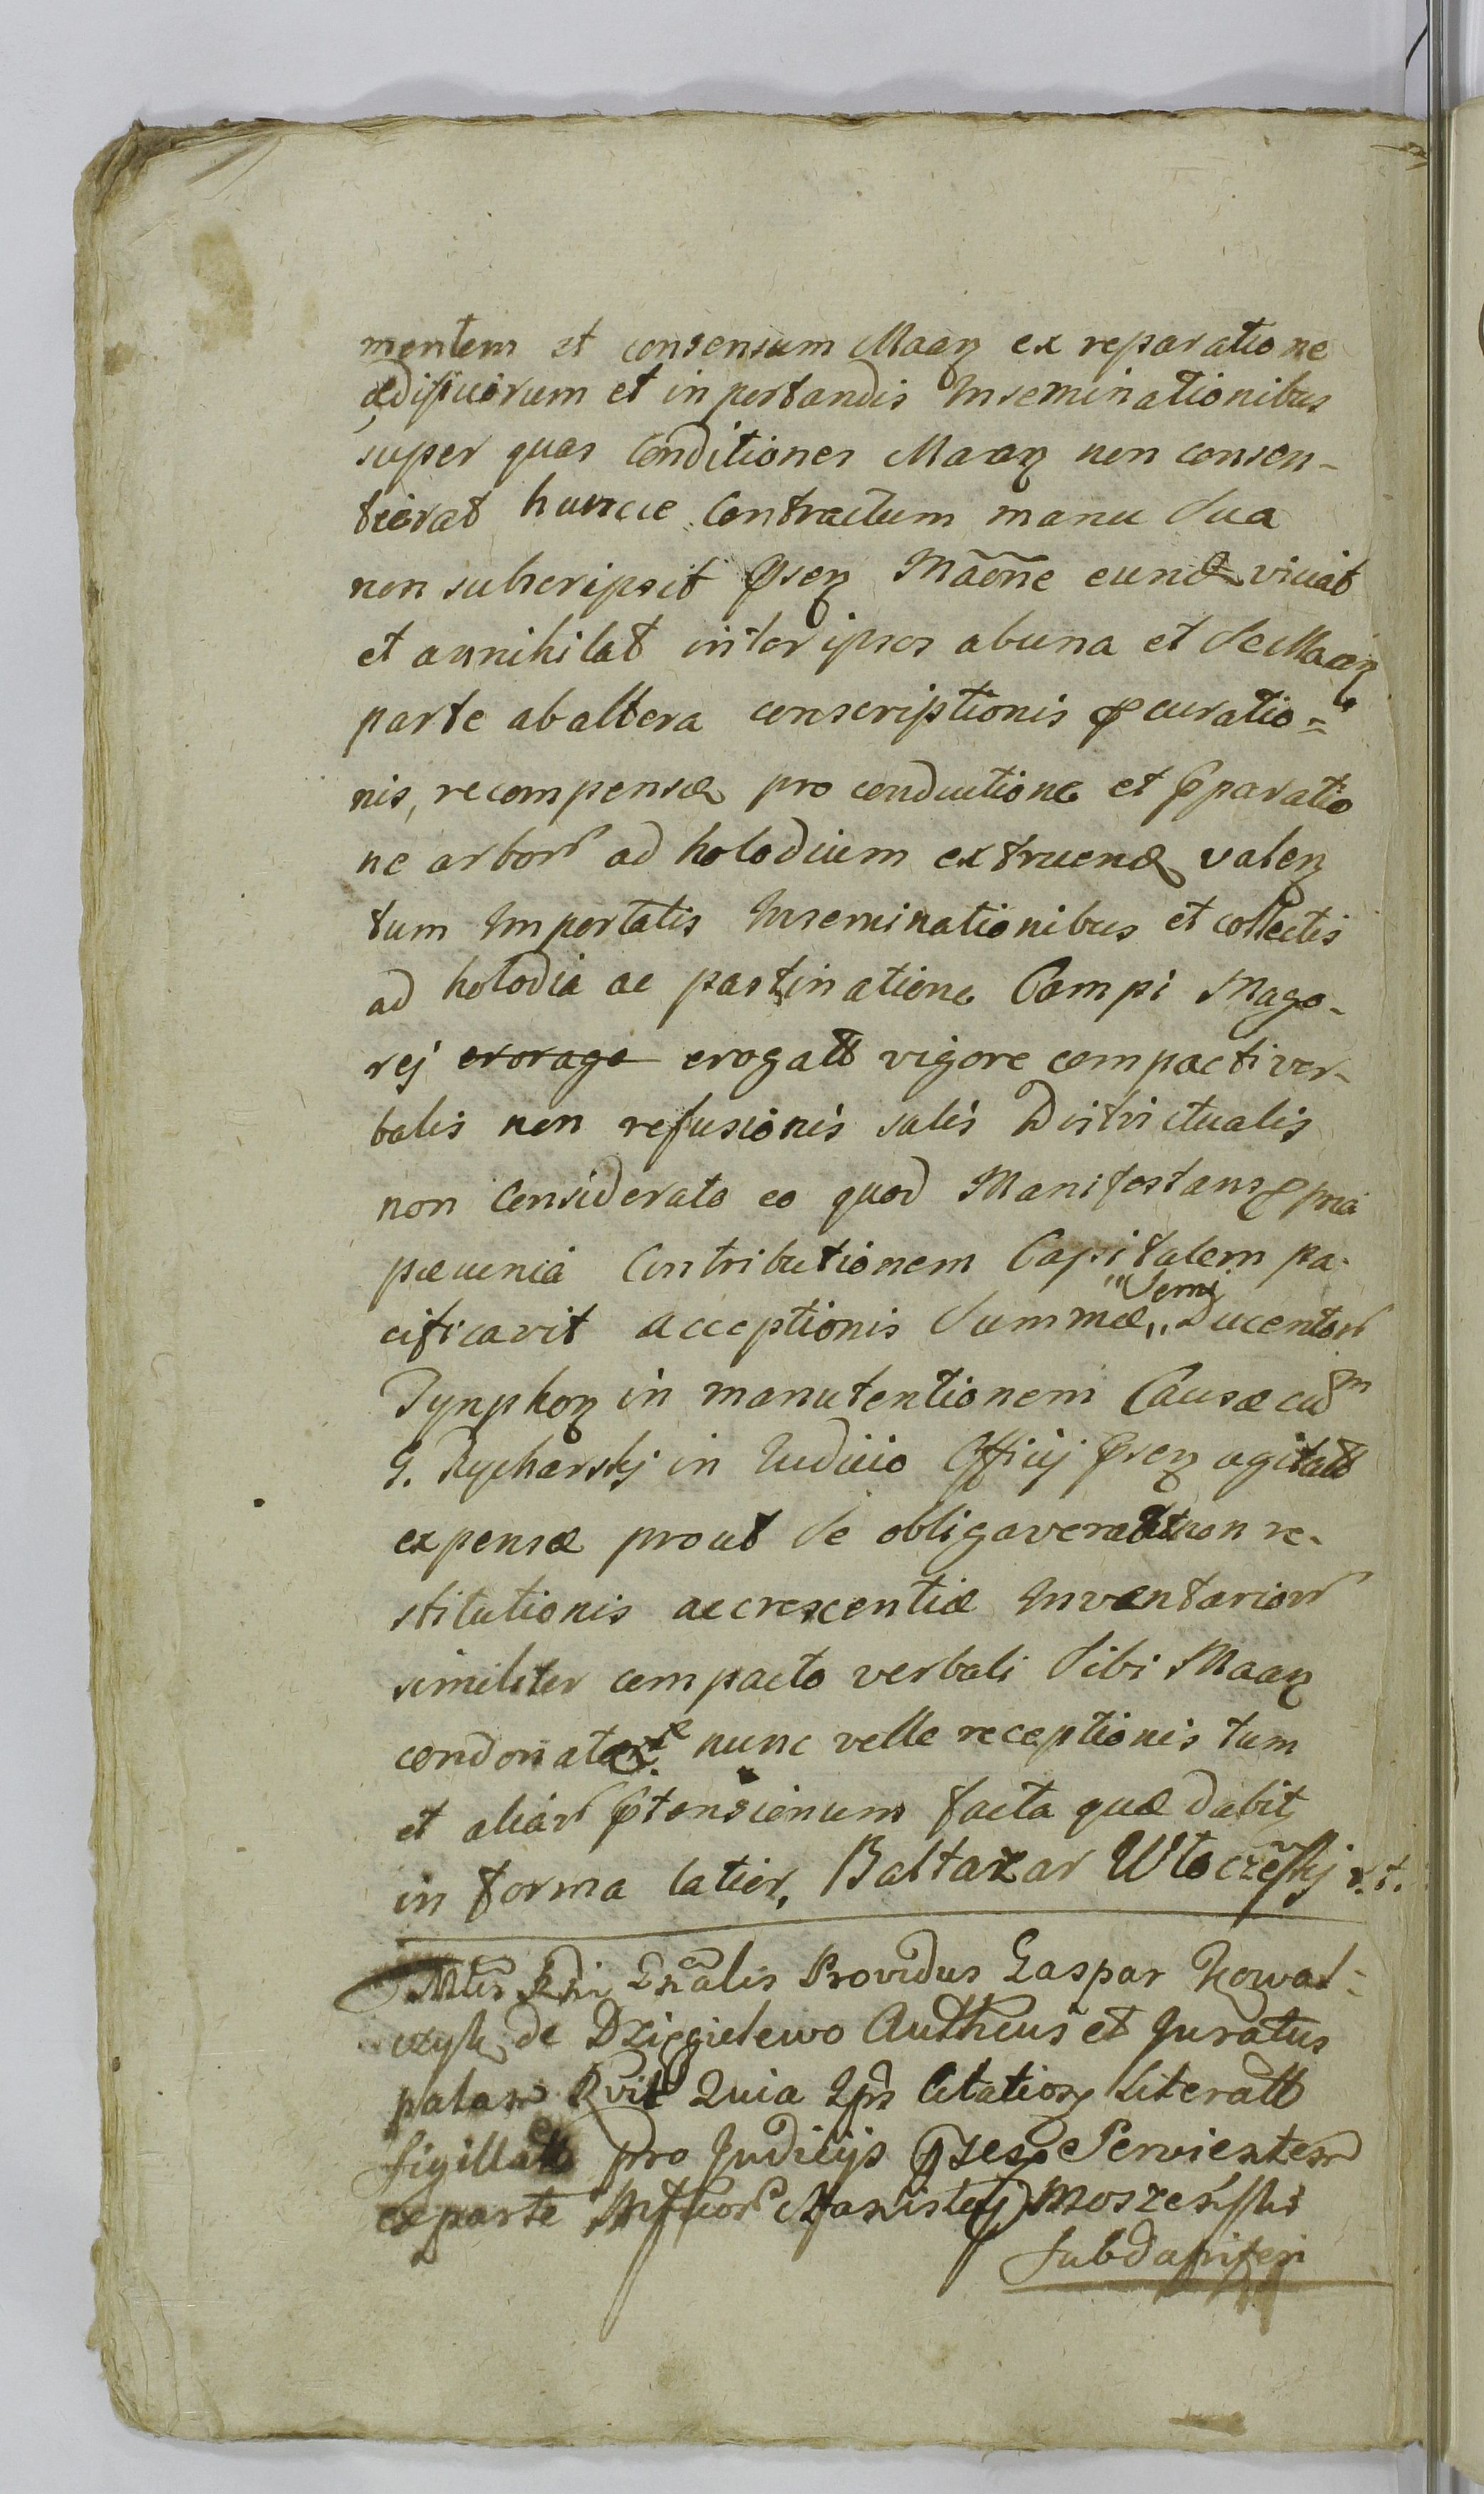 mentem et consensum Maaꝝ ex reparatione
ædificiorum et inportandis Inseminationibus
super quas Conditiones Maaꝝ non consen-
tierat huncce Contractum manu Sua
non subscripsit Pñseꝝ Mãõne eund viciat
et annihilat inter ipsos abuna et Se Maaꝝ
parte ab altera conscriptionis ꝓcuratio=
nis, recompensæ pro conductione et p̃paratio
ne arborᷓ ad holodium extruend valeꝝ
tum Importatis Inseminationibus et collectis
ad holodia ac pastinatione Campi Mago-
rej erorage erogatt vigore compacti ver-
balis non refusionis salis Districtualis
non Considerato eo quod Manifestans ꝓpria
pæcunia Contributionem Capitalem pa-
cificavit acceptionis Summæ "Semj" Ducentorᷓ
Tynphoꝝ in manutentionem Causæ cũm
G. Rycharskj in Iudicio Officij p̃seꝝ agitatt
expensæ prout Se obligaverat non re-
stitutionis accrescentiæ Inventariorᷓ
similiter compacto verbali Sibi Maaꝝ
condonatæ nunc velle receptionis tum
et aliarᷓ p̃tensionum facta quæ dabit
in forma latior, Baltazar Włoczẽskj
Mĩñs Rñi Gñalis Providus Gaspar Kowal-
czyk de Dzięgielewo Authcus et Juratus
palam Rvit Quia Ips Citatioꝝ Literatt
Sigillatt pro Judicijs p̃ses Servientem
exparte Mfcorᷓ Stanislaj Moszeńskị
Subdapiferi